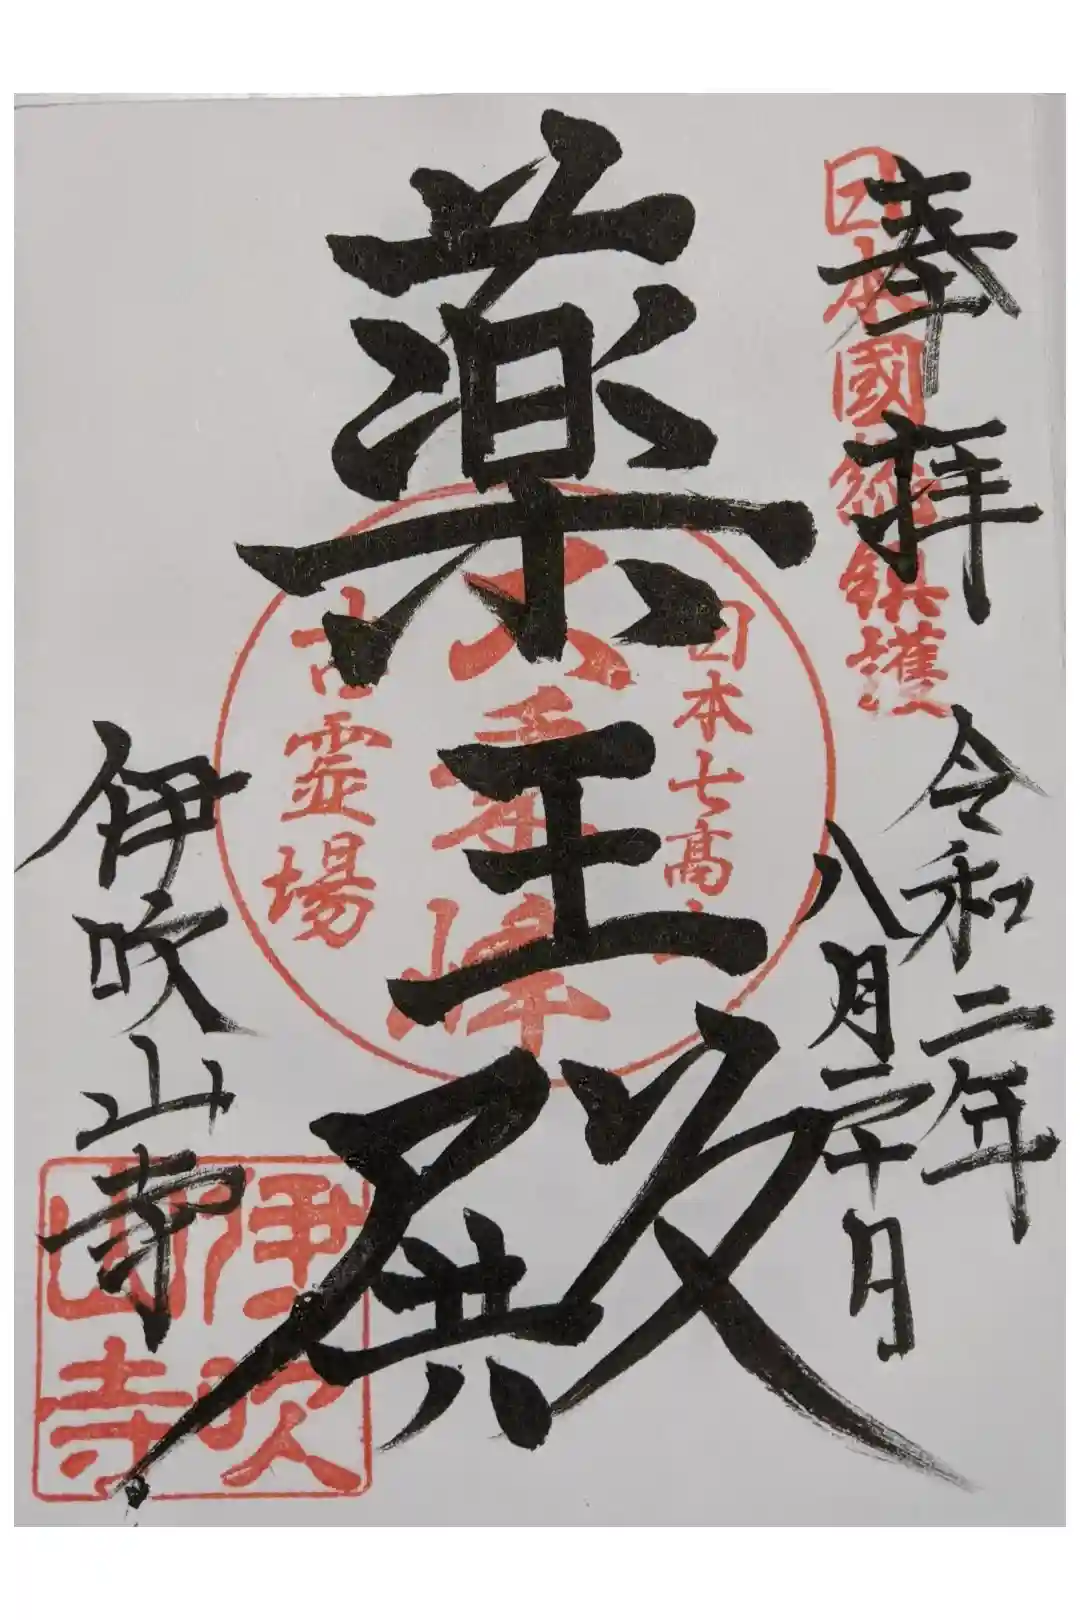 奉拝
日本國総鎮護
令和二年
八月二十日
日本七高山
薬王殿
大乗峰
古霊場
伊吹山寺
伊吹
山寺